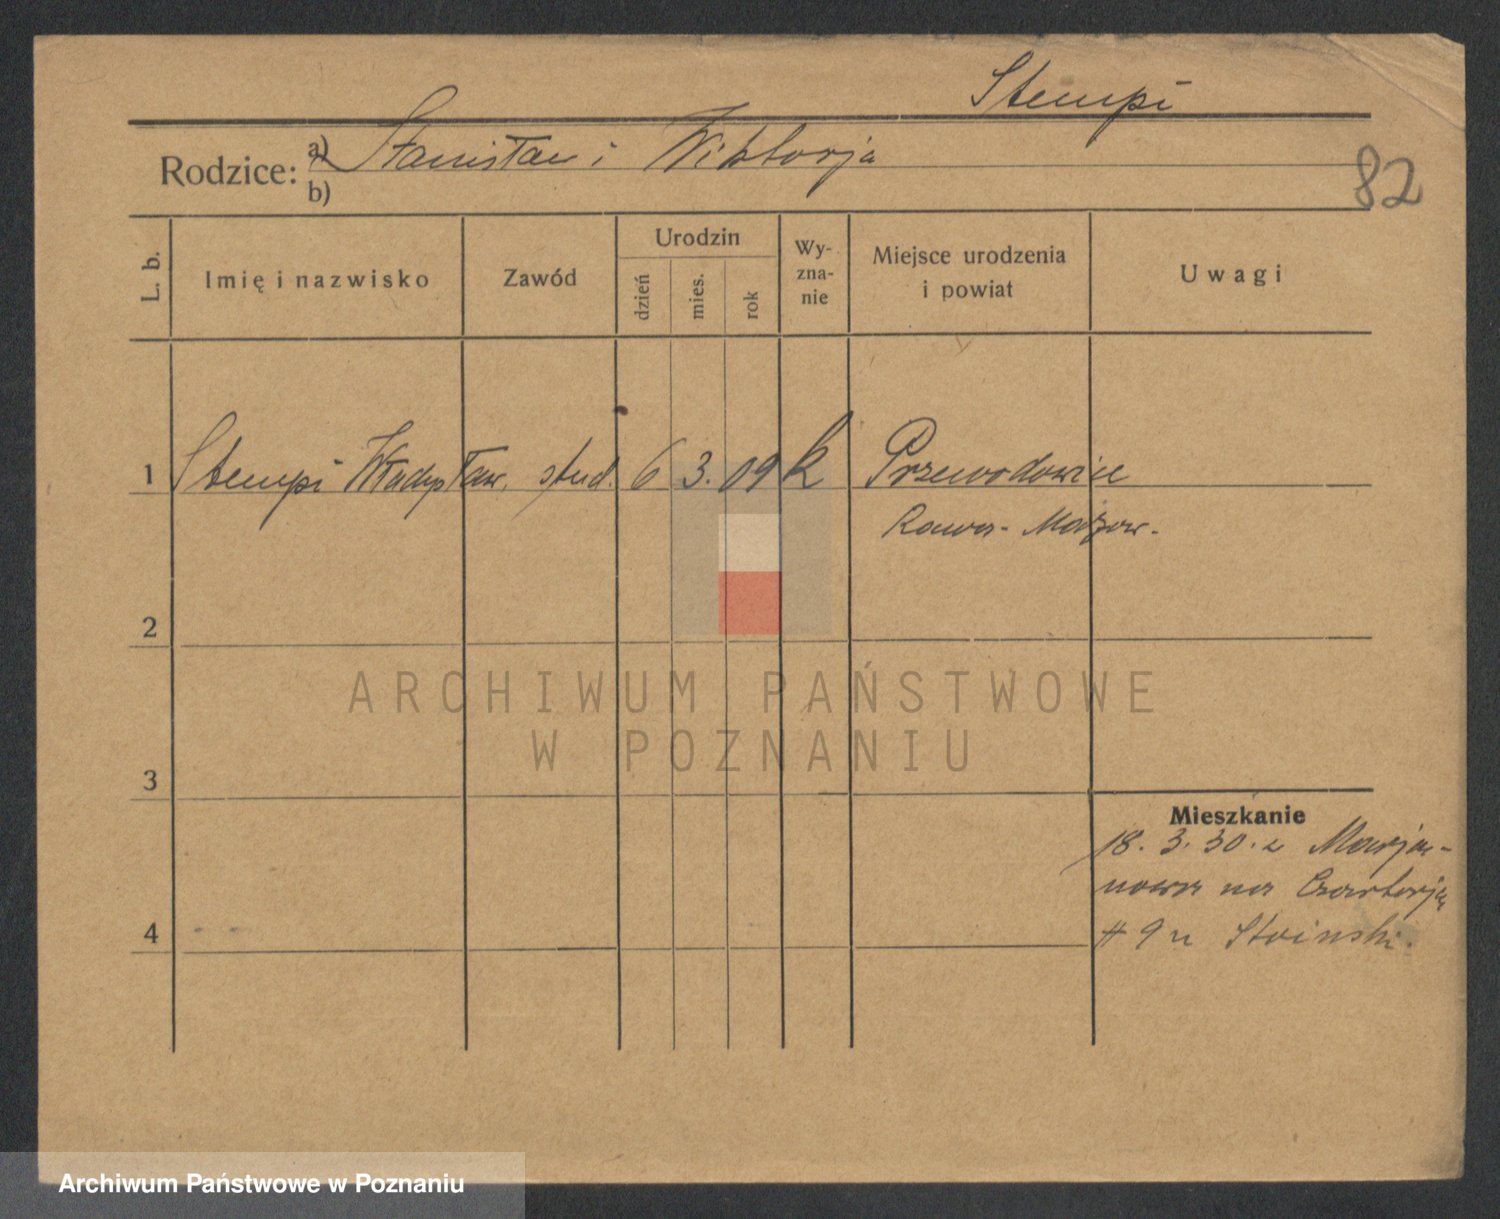 Stempi
Rodzice: a) Stanisław i Wiktorja
b)
82
L. b.
Imię i nazwisko
Zawód
Urodzin
dzień
mies.
rok
Wy-
zna-
nie
Miejsce urodzenia
i powiat
Uwagi
1 Stempi Władysław. stud. 6 3. 09 k Przewodowice
Rawa-Mazow.
2
ARCHIWUM PAŃSTWOWE
W POZNANIU
3
Mieszkanie
18. 3. 30. z Marja-
nowa na Czartorja
4
# 9 u Stoinski.
Archiwum Państwowe w Poznaniu